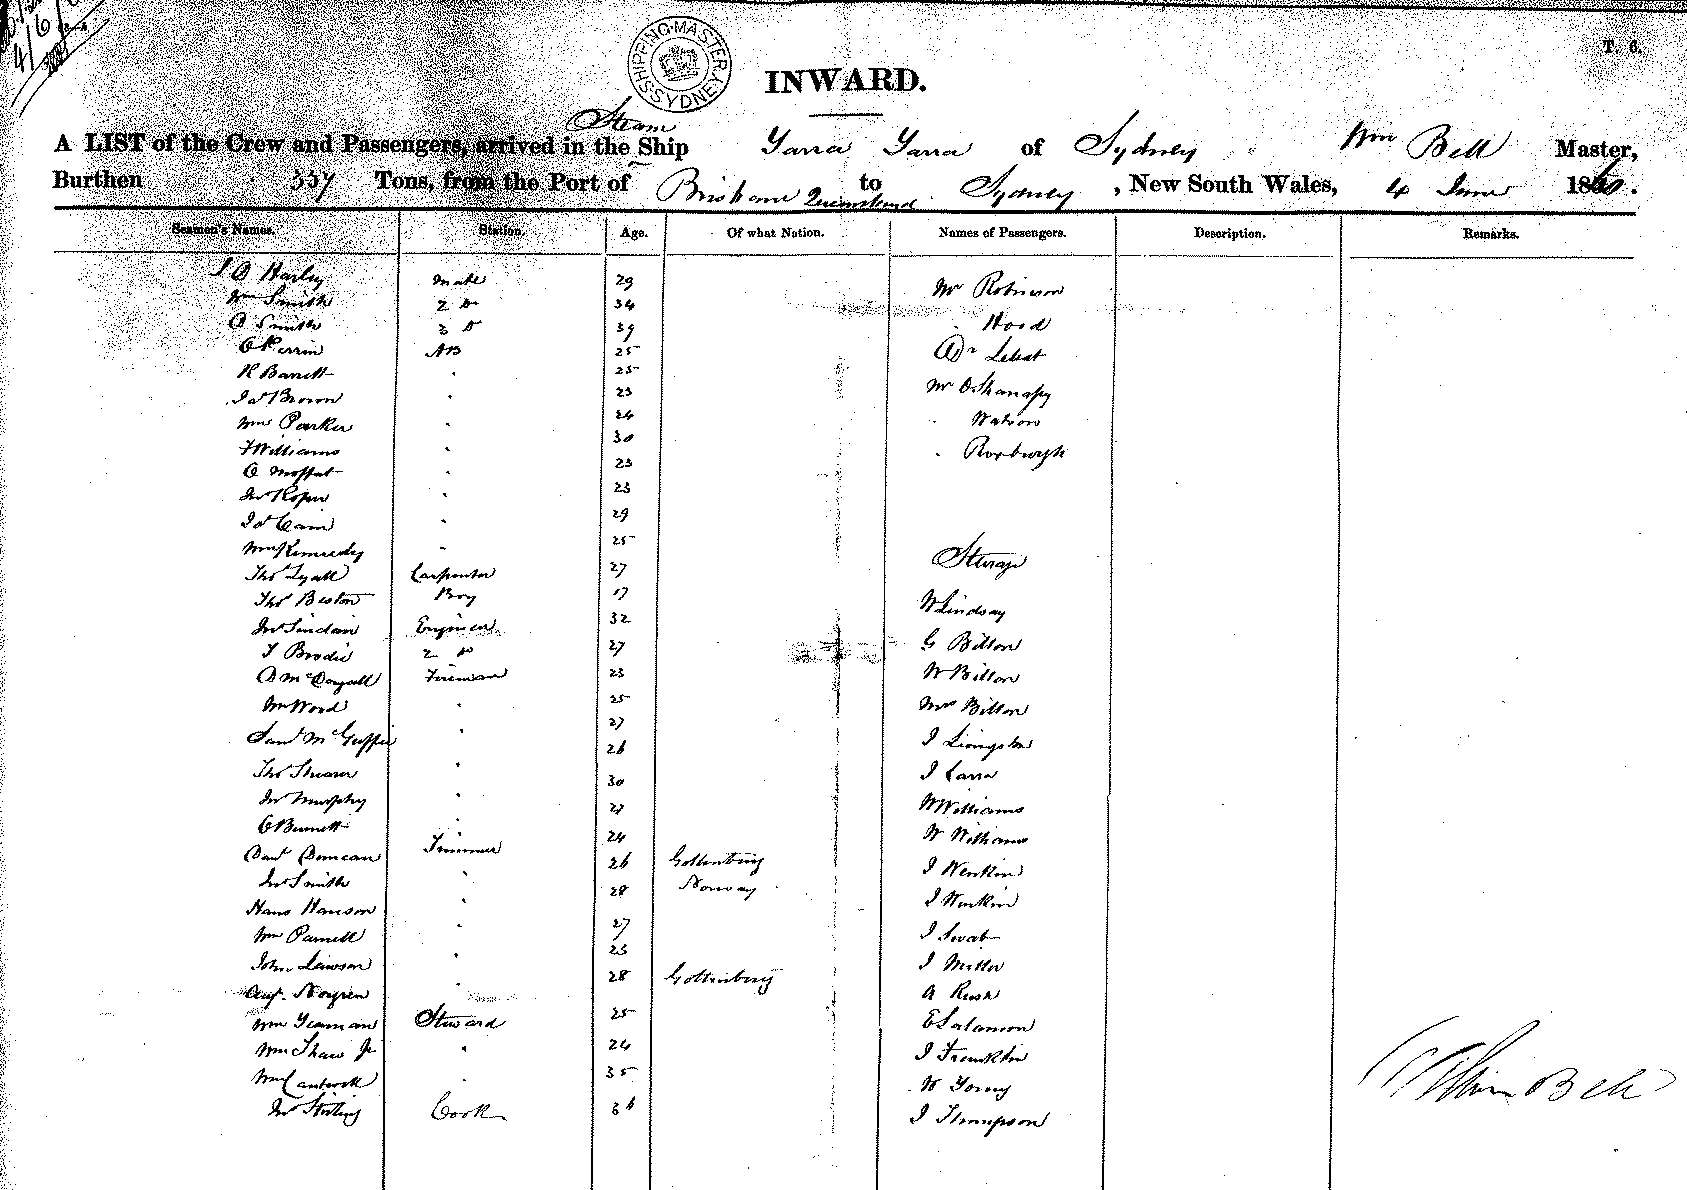 4/6/60
SHIPPING MASTER SYDNEY
T. 6.
INWARD.
Steam
A LIST of the Crew and Passengers, arrived in the Ship Yarra Yarra of Sydney Wm Bell Master,
Burthen 337 Tons, from the Port of Brisbane Queensland to Sydney, New South Wales, 4 June 1860.
Seamen's Names. Station. Age. Of what Nation. Names of Passengers. Description. Remarks.
Harley Mate 29 Mr Robinson
Wm Smith 2 Do 34
Smith 3 Do 39 " Hood
Perrin AB 25 Dr
R Barrett " 25
Jas Brown " 23 Mr O'Shanassy
Wm Parker " 24 " Watson
Williams " 30 " Roxburgh
Moffat " 23
Jno Roper " 23
Jas Cain " 29
Wm Kennedy " 25 Steerage
Thos Lyall Carpenter 27
Thos Beston Boy 17 W Lindsay
Jno Sinclair Engineer 32
Brodie 2 Do 27 G Bilton
D McDougall Fireman 23 W Bilton
Wm Wood " 25 Mrs Bilton
Saml McGuffie " 27 J Livingston
Thos Shearer " 26 J Carra
Jno Murphy " 30 W Williams
C Burnett " 27 W Williams
Danl Duncan Trimmer 24
Jno Smith " 26 Gottenburg J Wenkin
Hans Hanson " 28 Norway J Wenkin
Wm Parnell " 27 J
John Lawson " 23 J Miller
Augt Norgren " 28 Gottenburg A Rush
Wm Yeaman Steward 25 E Salamon
Wm Shaw Jr " 24 J Franklin
Wm Cantwell " 35 W Young
Jno Stirling Cook 36 J Thompson
William Bell